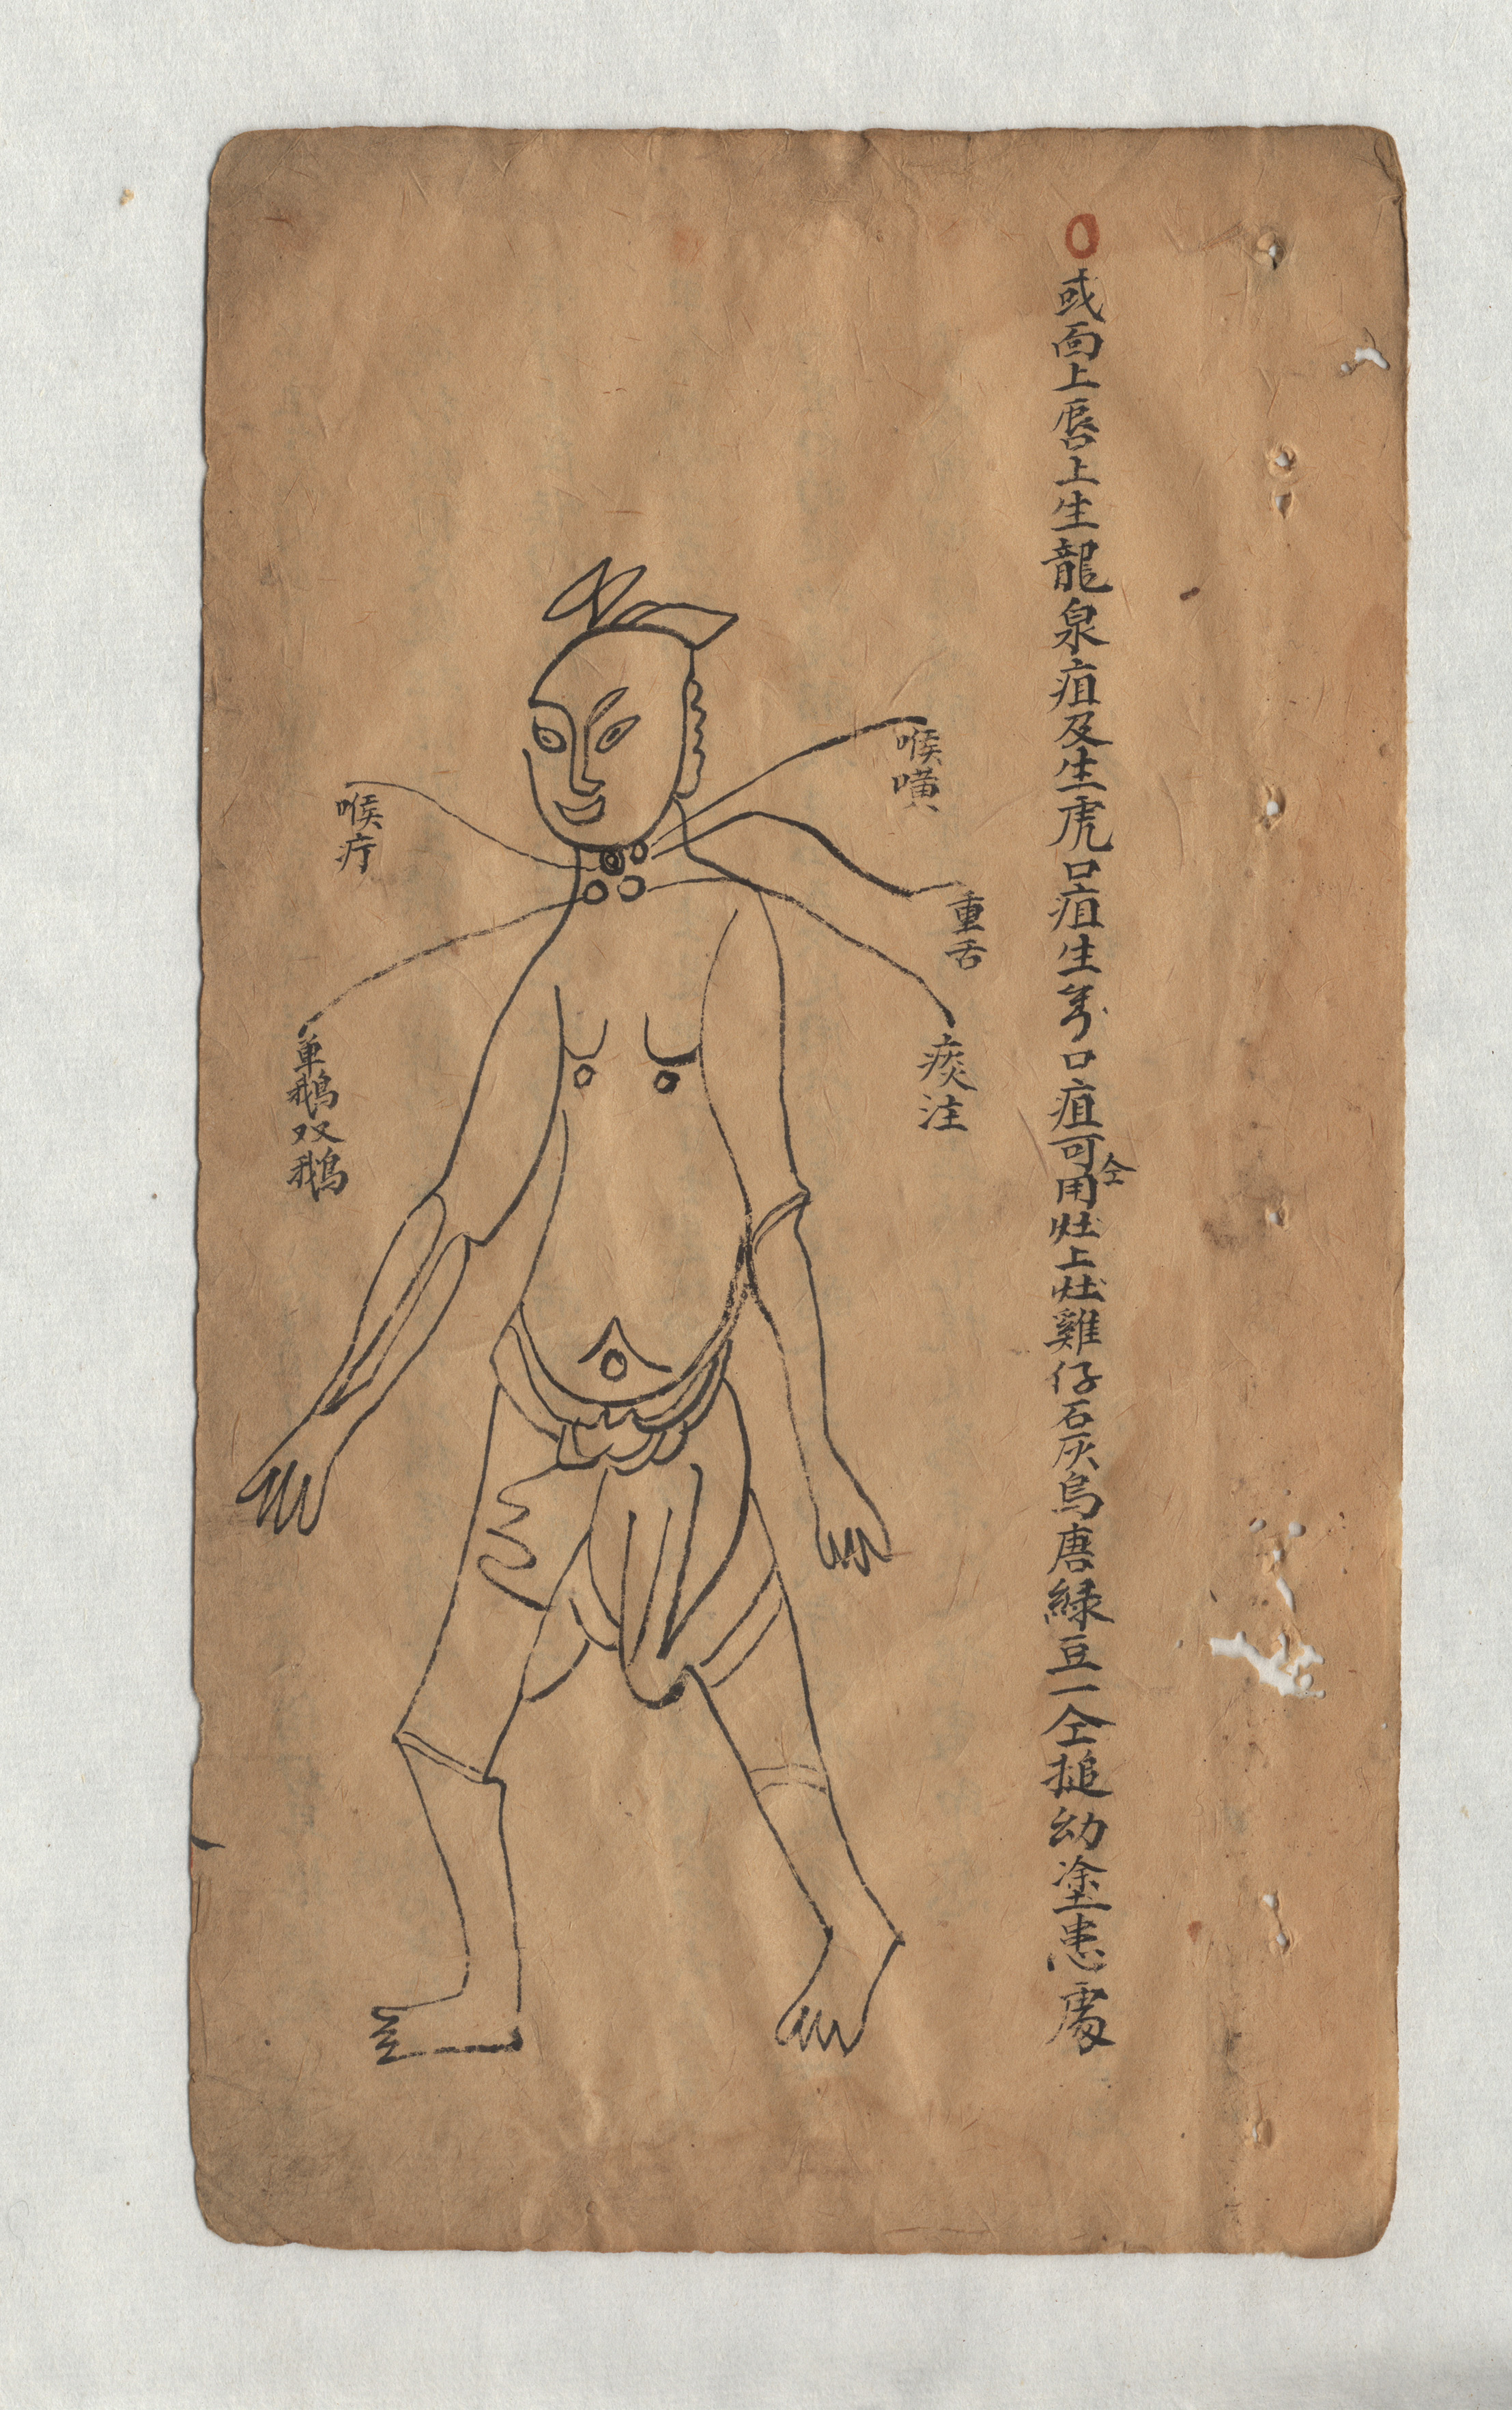 或面上唇上生龍泉疽及生虎口疽生 口疽可仝用灶上灶雞仔石灰烏唐綠豆一仝搥幼塗患處
喉嗹
重舌
痰注
喉疔
单鵝双鵝